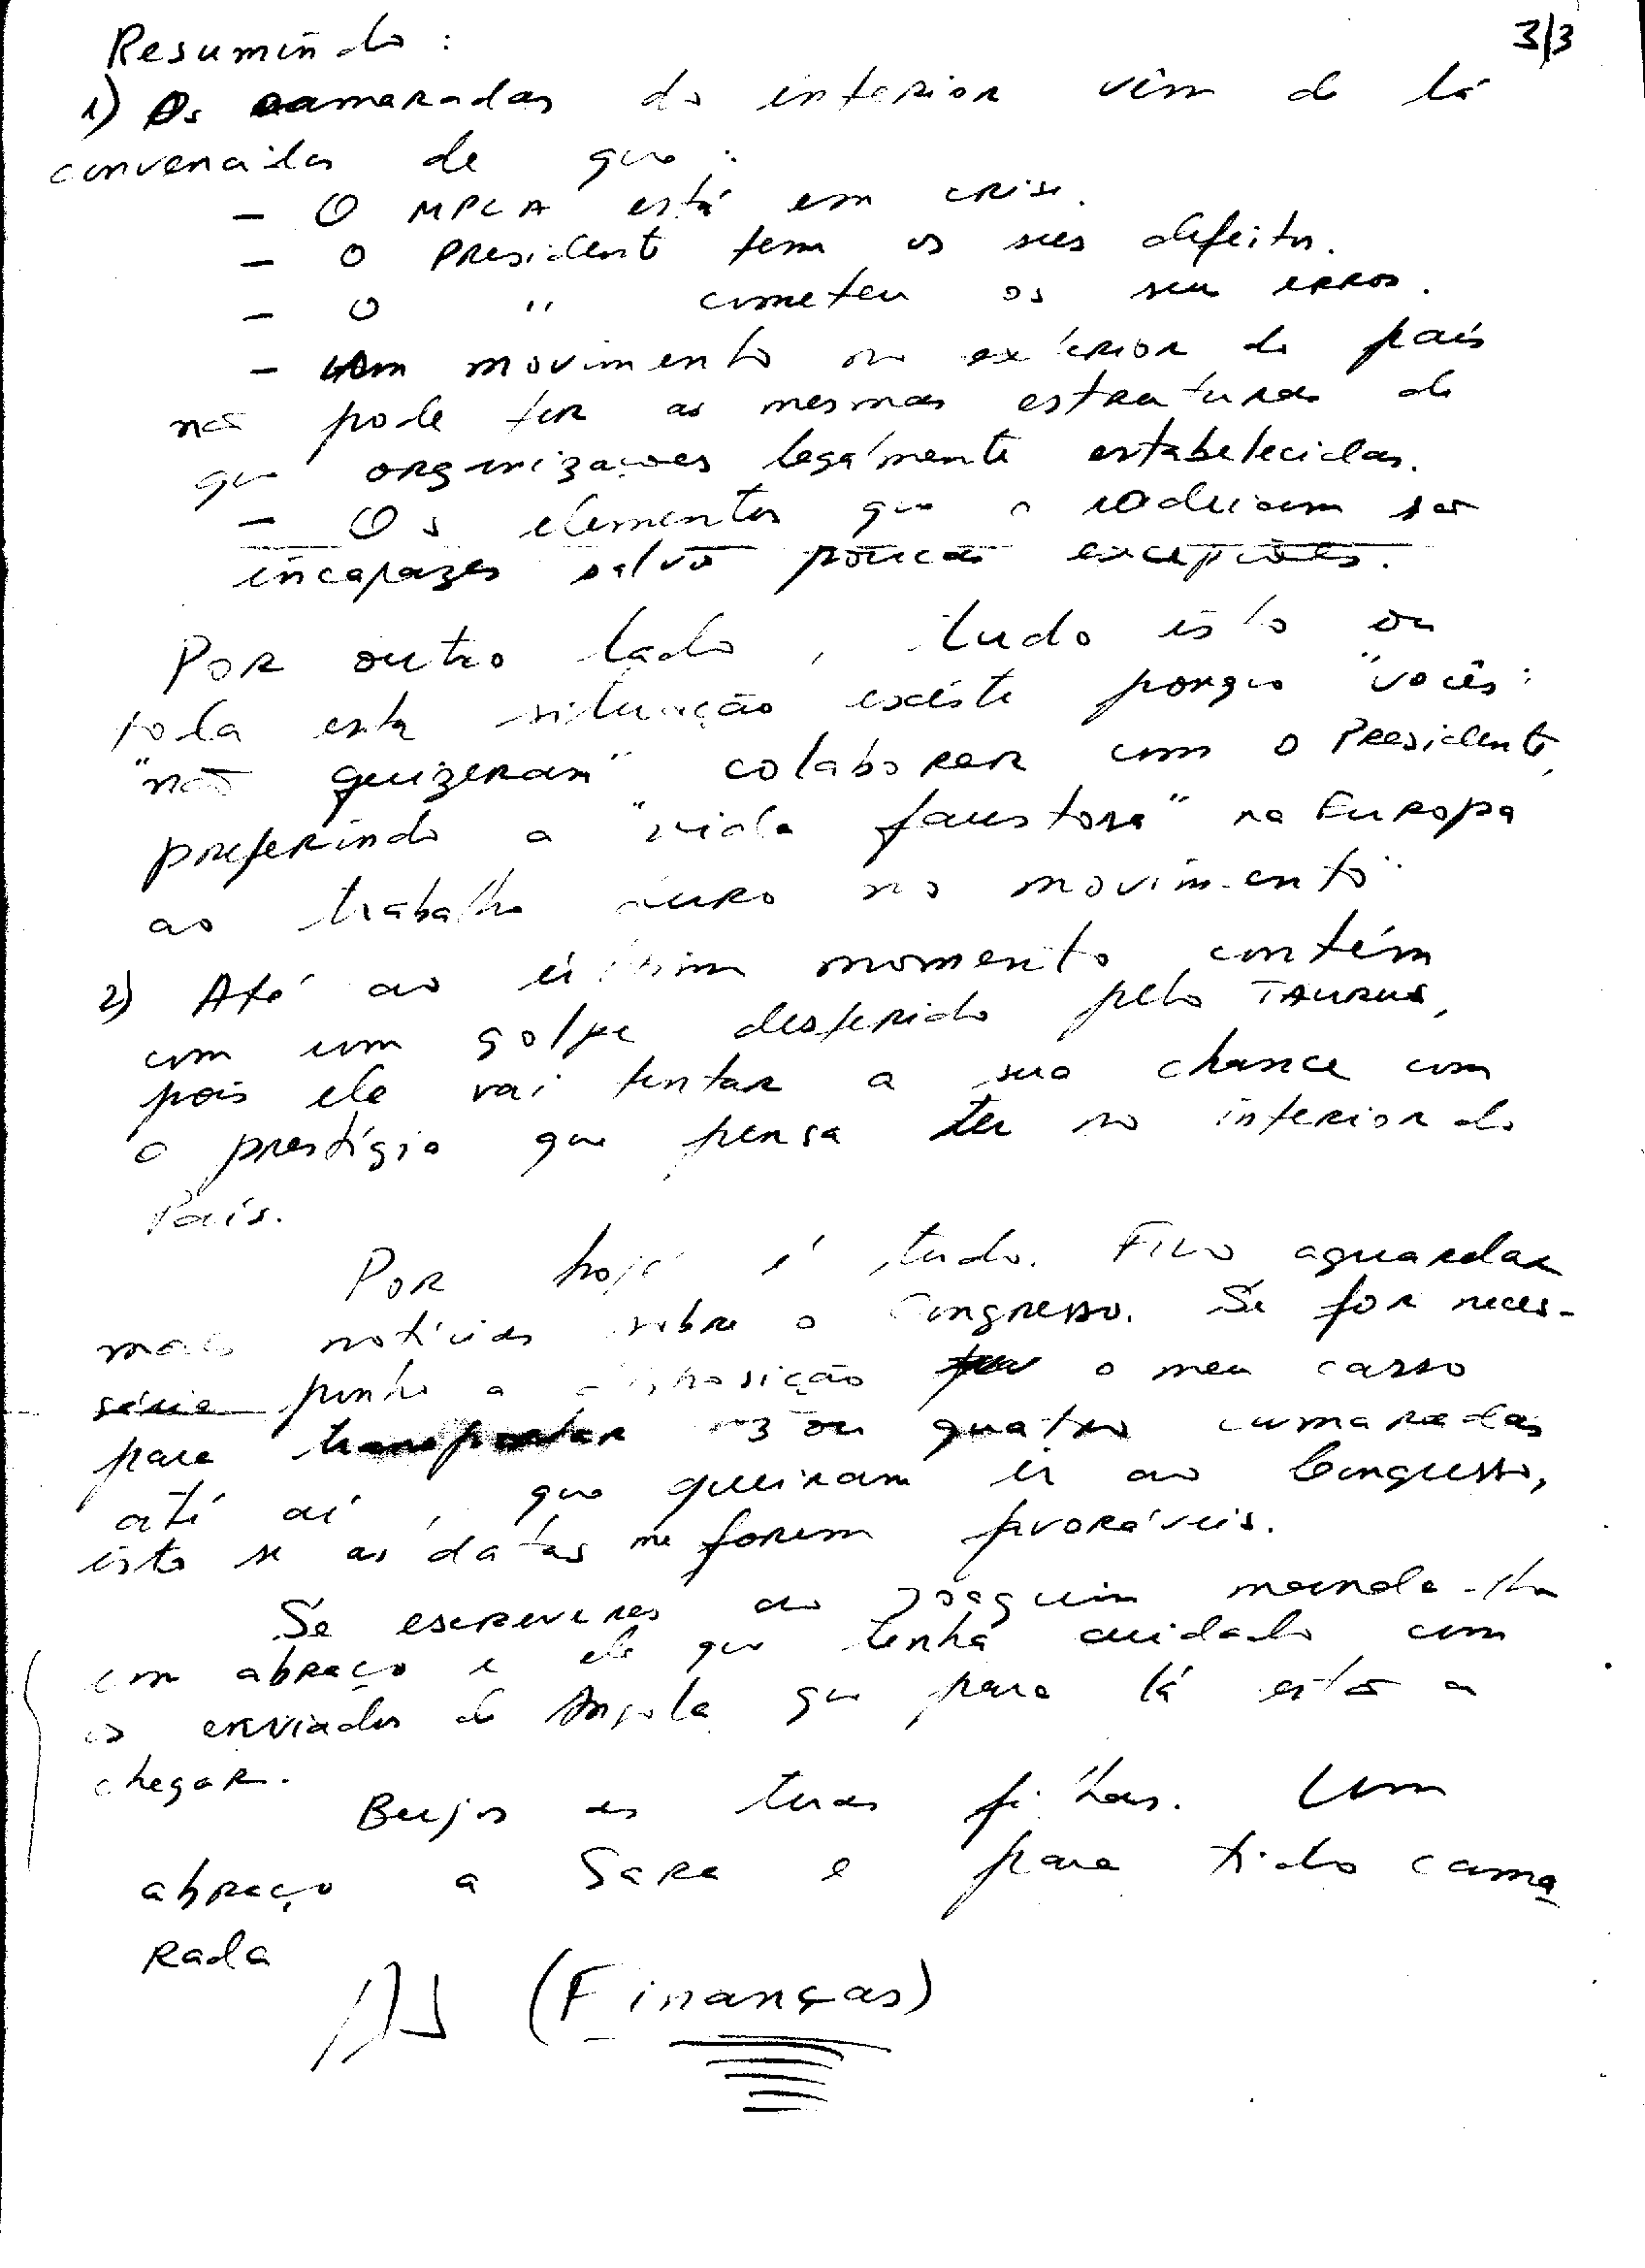 3/3
Resumindo :
1) Os camaradas do interior vêm de lá
convencidos de que :
- O MPLA está em crise.
- O Presidente tem os seus defeitos.
- O " cometeu os seus erros.
- Um movimento no exterior do país
não pode ter as mesmas estruturas do
que organizações legálmente estabelecidas.
- Os elementos que o rodeiam são
incapazes salvo poucas excepções.
Por outro lado, tudo isto ou
toda esta situação existe porque "vocês"
"não quizeram" colaborar com o Presidente,
preferindo a "vida faustosa" na Europa
ao trabalho duro no movimento
2) Até ao último momento contém
com um golpe desferido pelo TAURUS,
pois ele vai tentar a sua chance com
o prestígio que pensa ter no interior do
País.
Por hoje é tudo. Fico aguardar
mais notícias sobre o Congresso. Se for neces-
sário ponho a disposição o meu carro
para transportar ou quatro camaradas
até aí, que queiram ir ao Congresso,
isto se as datas me forem favoráveis.
Se escreveres ao Joaquim manda-lhe
um abraço e ele que tenha cuidado com
os enviados de Angola que para lá estão a
chegar.
Beijos as tuas filhas. Um
abraço a Sara e para ti do cama
rada
(Finanças)